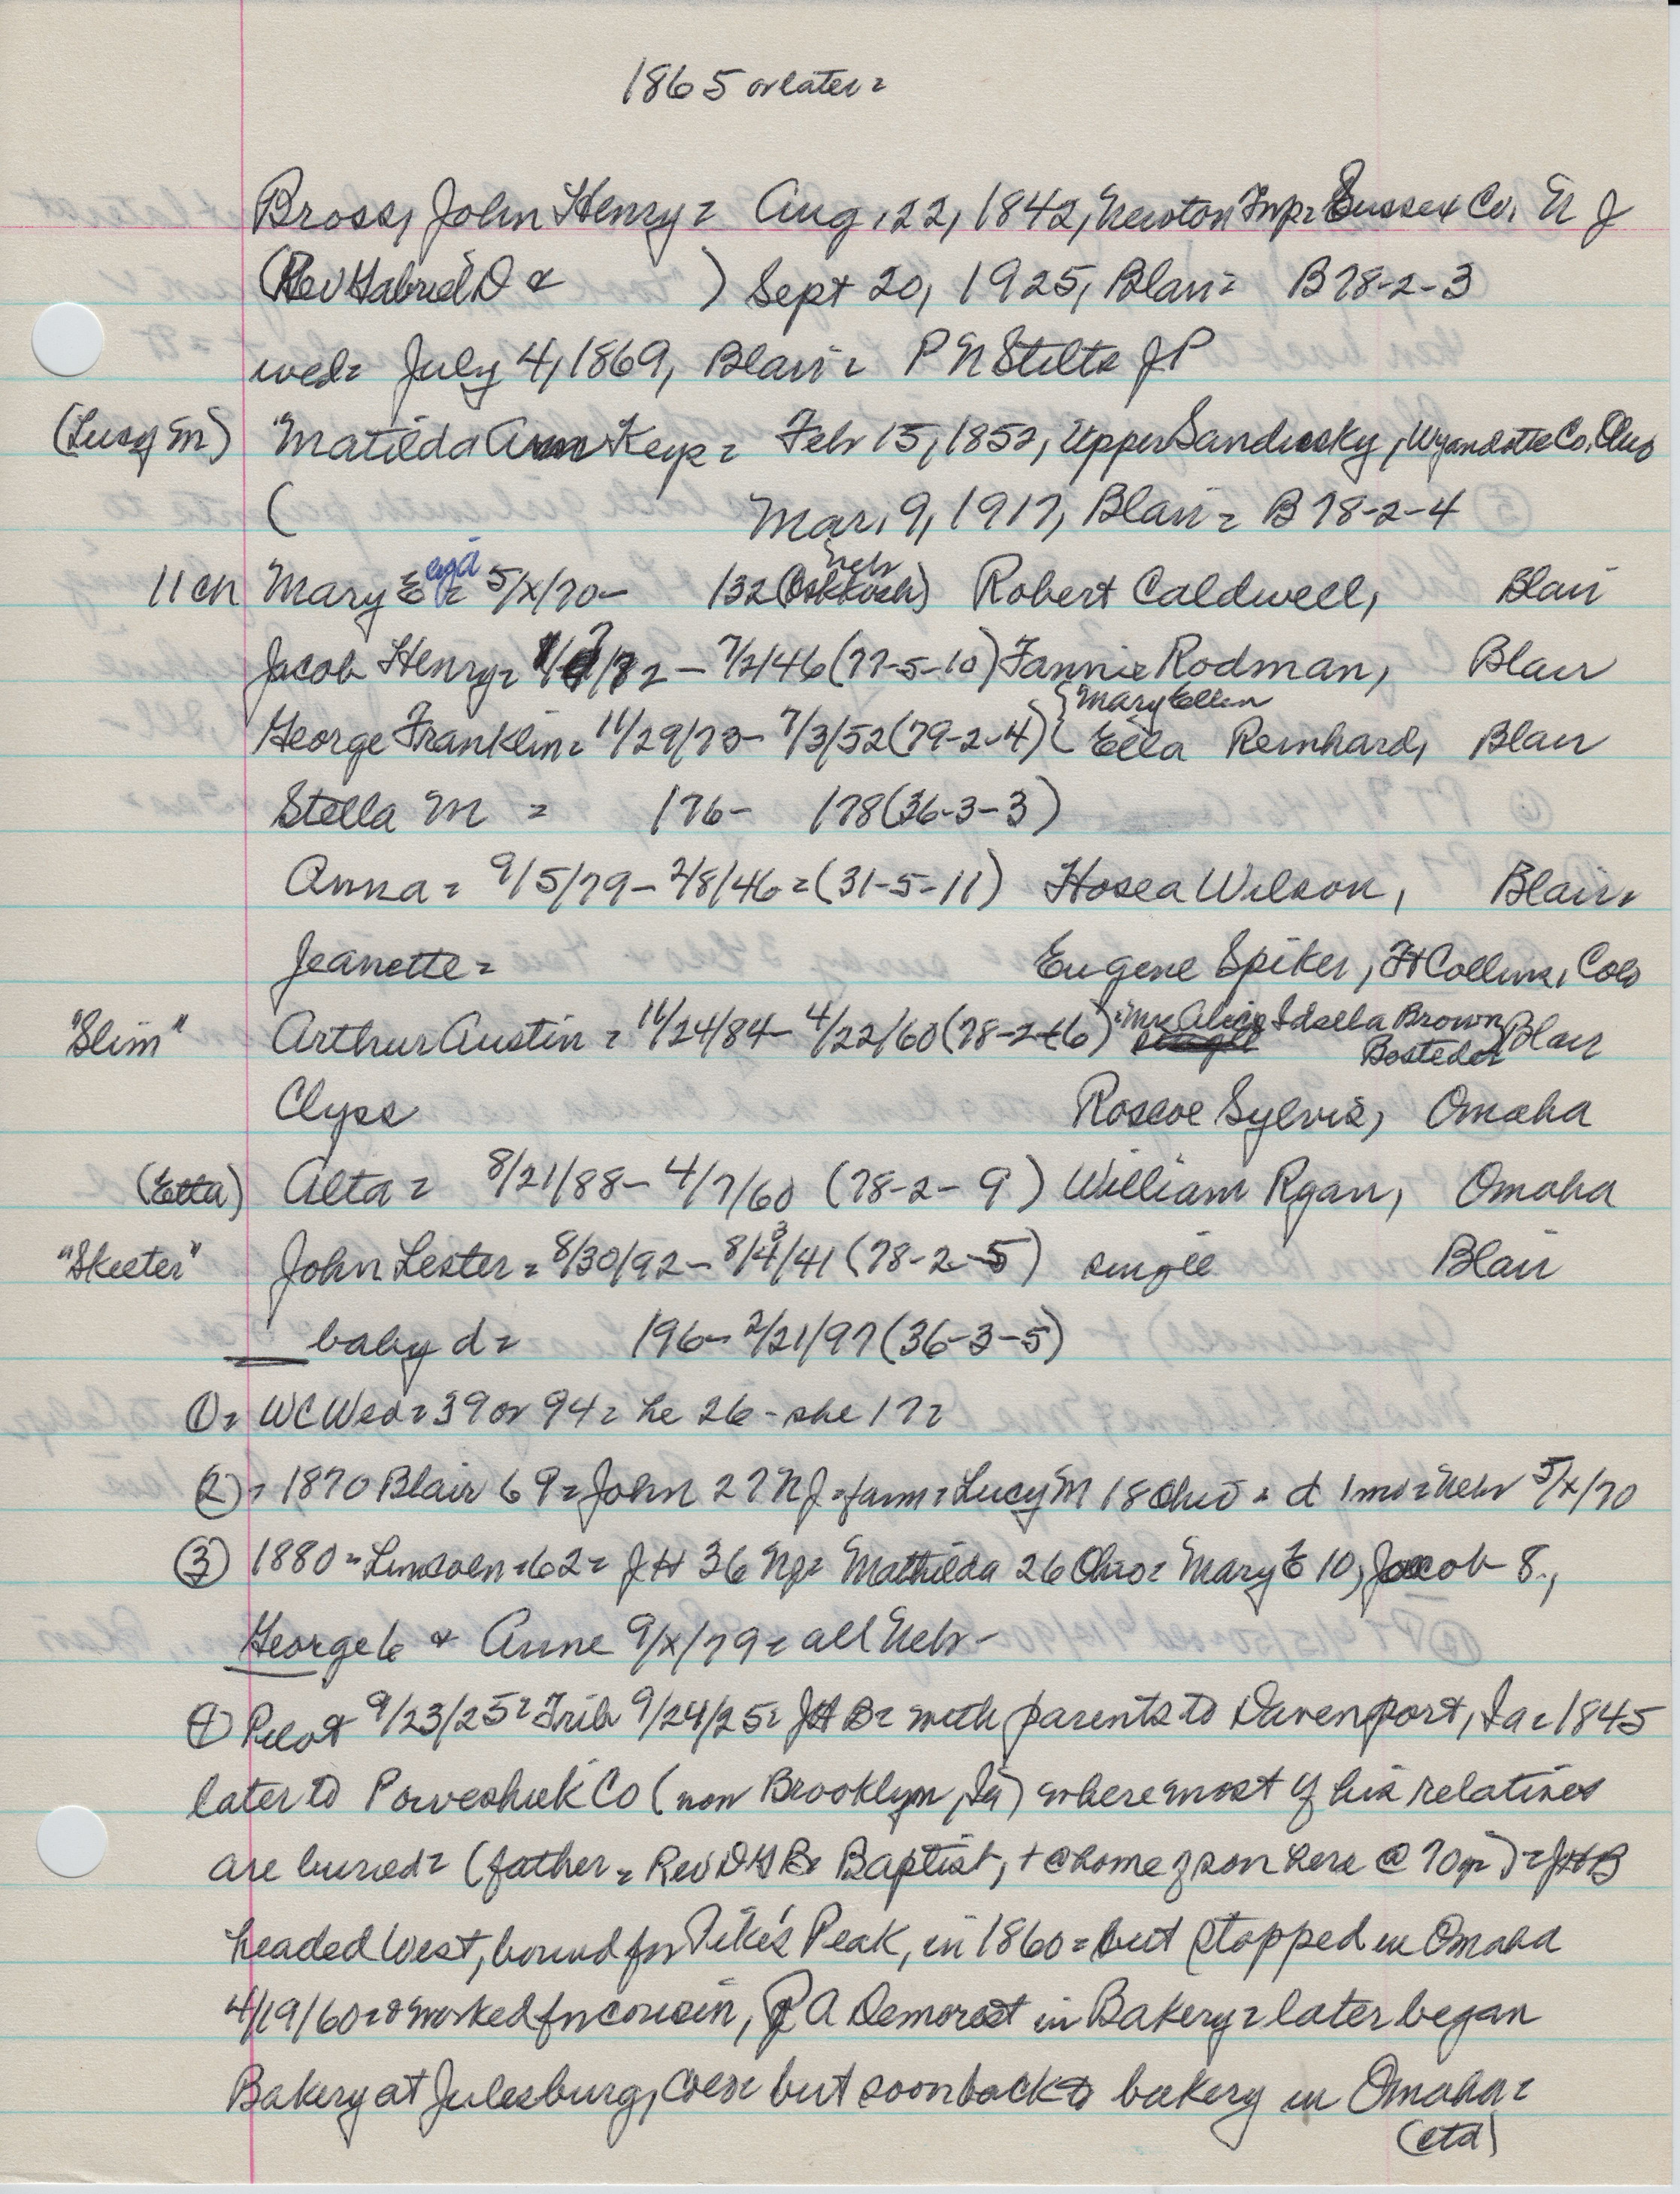 1865 or later =
Bross, John Henry = Aug. 22, 1842, Newton Twp = Sussex Co. N J
(Rev Gabriel D & ) Sept 20, 1925, Blair = B 78-2-3
wed = July 4, 1869, Blair = P N Stilts J P
(Lucy M) Matilda Ann Keys = Feb 15, 1852, Upper Sandusky, Wyandotte Co. Ohio
( Mar. 9, 1917, Blair = B 78-2-4
11 ch Mary E = 5/x/70 - /32 (Oshkosh Neb) Robert Caldwell, Blair
Jacob Henry = /72 - 7/2/46 (77-5-10) Fannie Rodman, Blair
George Franklin = 11/29/73 - 7/3/52 (79-2-4) { Mary Ellen Ella Reinhard, Blair
Stella M = /76 - /78 (36-3-3)
Anna = 9/5/79 - 2/8/46 = (31-5-11) Hosea Wilson, Blair =
Jeanette = Eugene Spiker, Ft Collins, Colo
"Slim" Arthur Austin = 11/24/84 - 4/22/60 (78-2-6) Mrs Alice Idella Brown Bosteder Blair
Clyss Roscoe Sylvis, Omaha
(Etta) Alta = 8/21/88 - 4/7/60 (78-2-9) William Ryan, Omaha
"Skeeter" John Lester = 8/30/92 - 8/3/41 (78-2-5) single Blair
baby d = /96 - 2/21/97 (36-3-5)
① = WC Wed = 39 or 94 = he 26 - she 17 =
② = 1870 Blair 69 = John 27 NJ = farm = Lucy M 18 Ohio = d 1 mo = Nebr 5/x/70
③ 1880 = Lincoln = 62 = J H 36 NJ = Mathilda 26 Ohio = Mary E 10, Jacob 8,
George 6 & Anne 9/x/79 = all Nebr -
④ Pilot 9/23/25 = Trib 9/24/25 = JHB = with parents to Davenport, Ia = 1845
later to Poweshiek Co (now Brooklyn, Ia) where most of his relatives
are buried = (father = Rev D G B = Baptist, + @ home of son here @ 70 yr) = JHB
headed West, bound for Pike's Peak, in 1860 = but stopped in Omaha
4/19/60 = & worked for cousin, J A Demorest in Bakery = later began
Bakery at Julesburg, Colo = but soon back to bakery in Omaha =
(ctd)